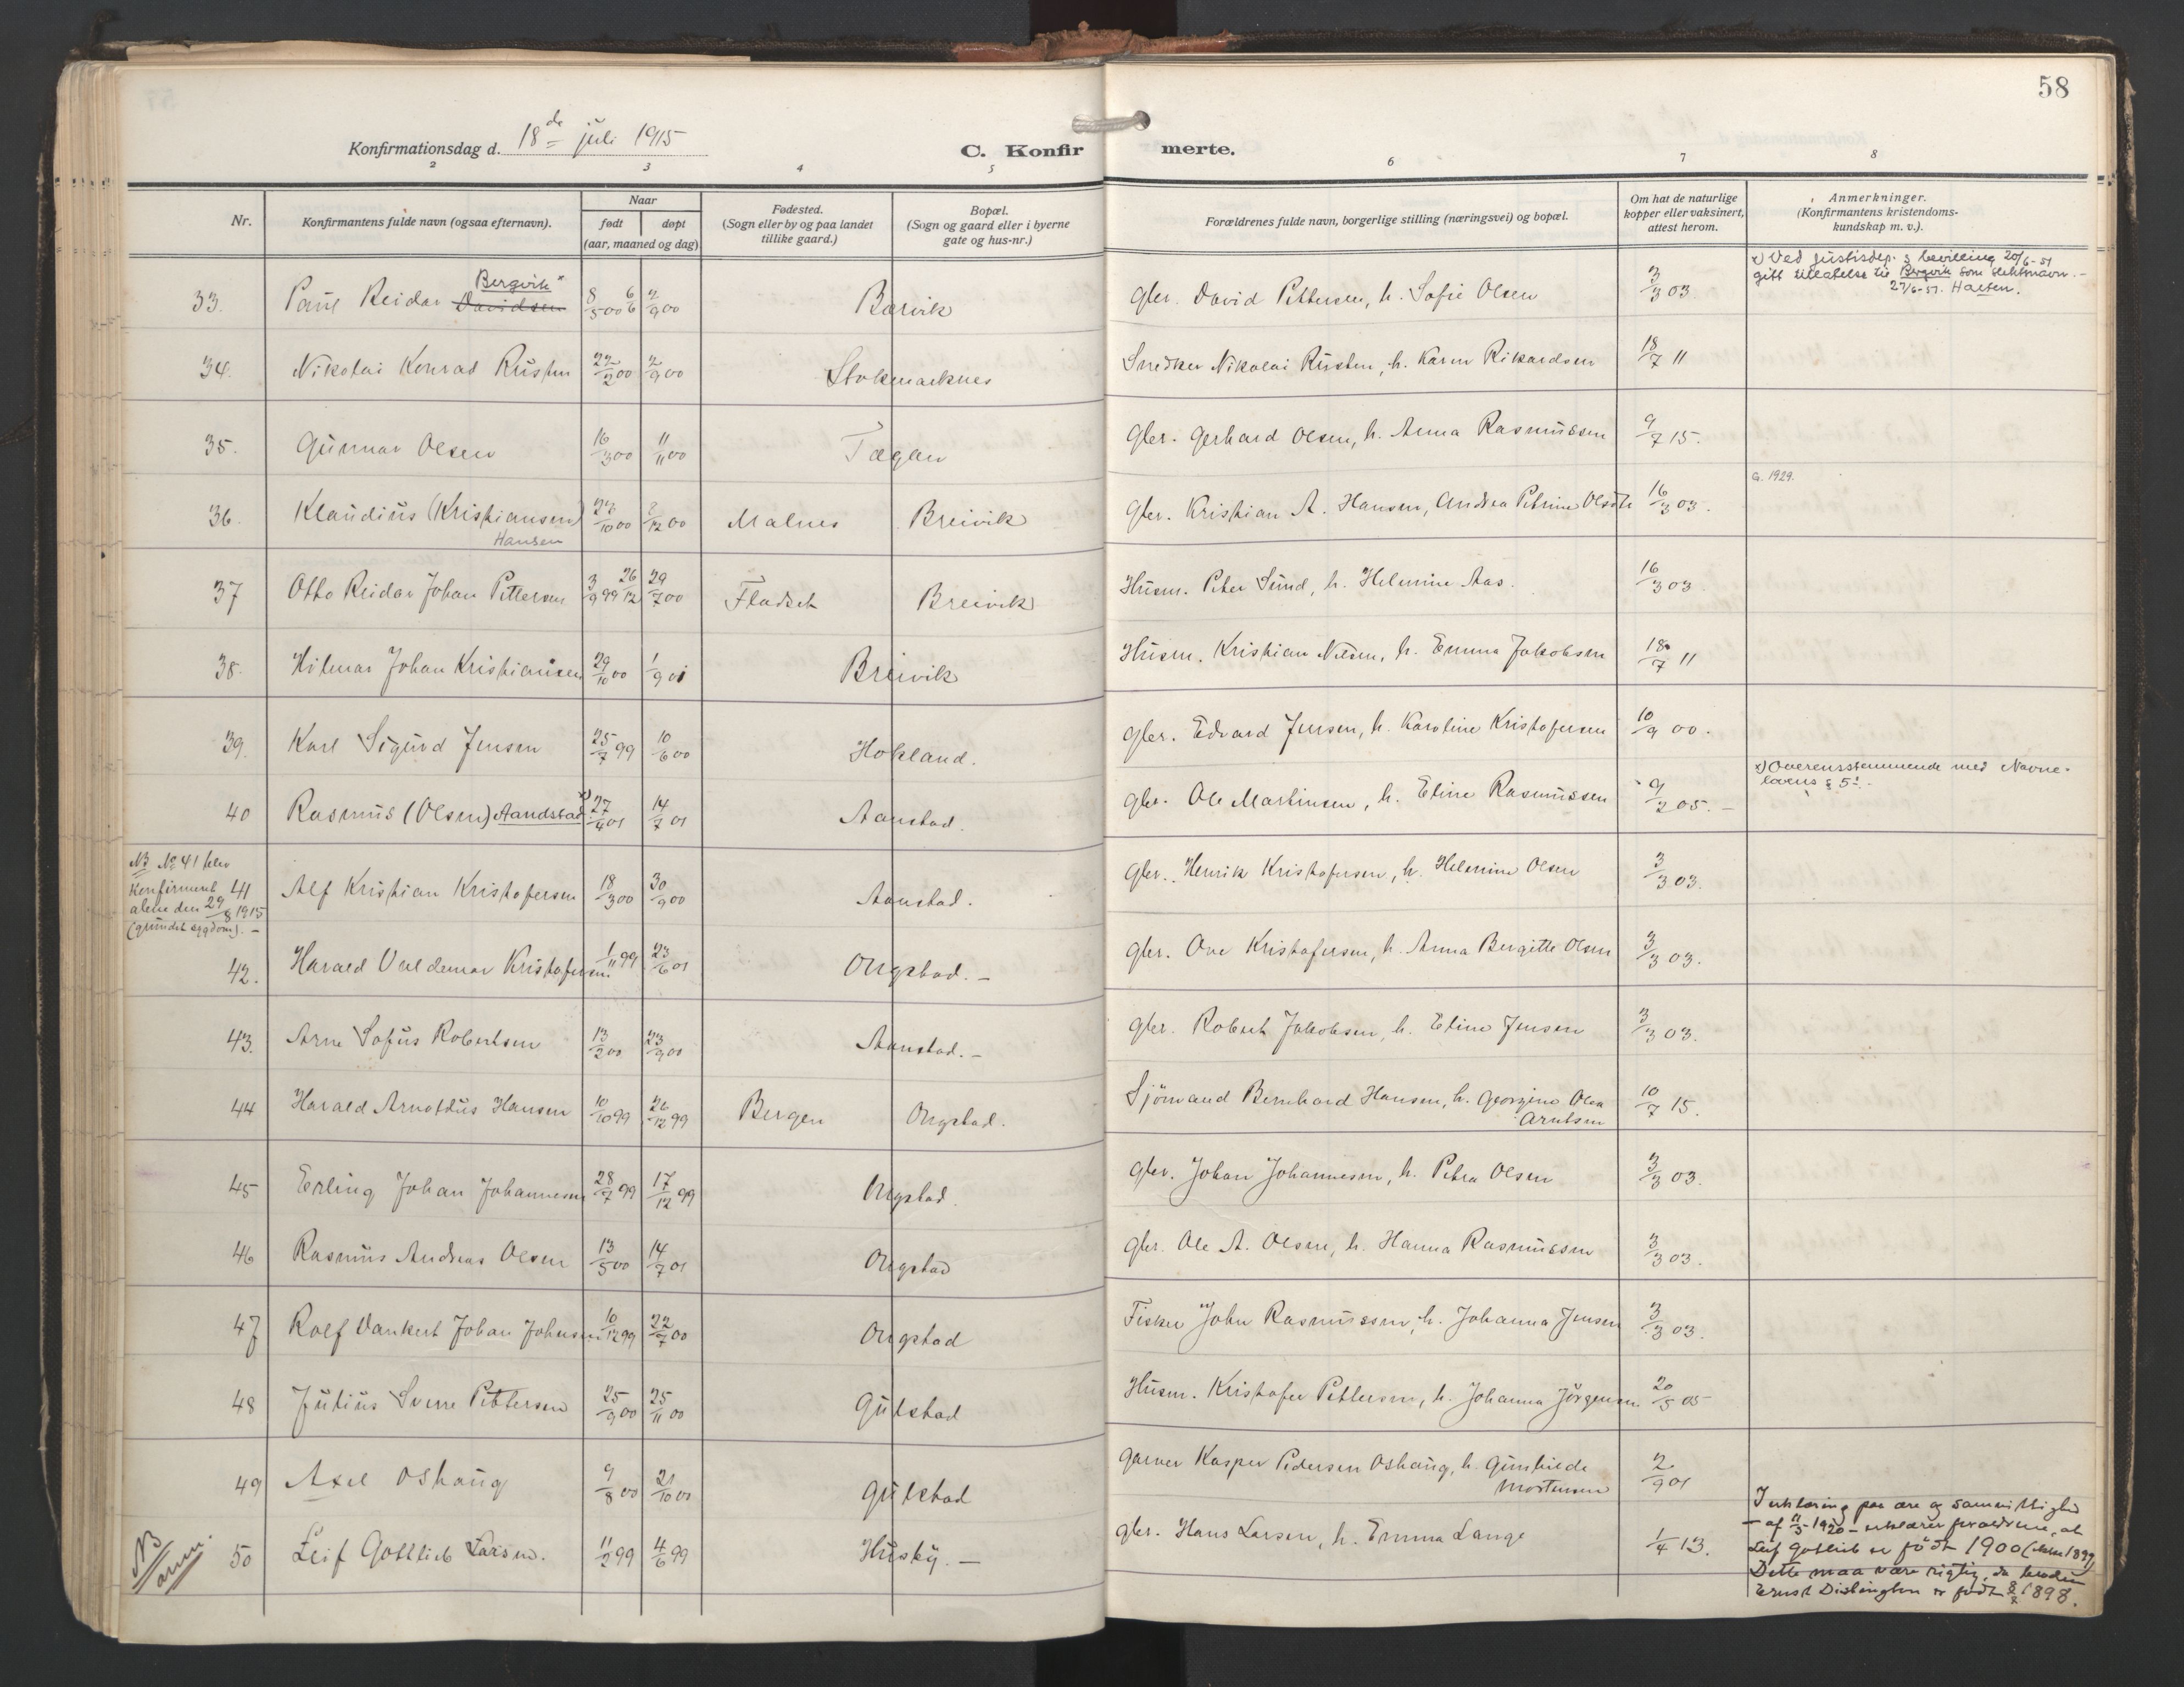 58
Konfirmationsdag d. 18de juli 1915
C. Konfirmerte.
2 3 4 5 6 7 8
Nr. Konfirmantens fulde navn (ogsaa efternavn). Naar født døpt (aar, maaned og dag) Fødested. (Sogn eller by og paa landet tillike gaard.) Bopæl. (Sogn og gaard eller i byerne gate og hus-nr.) Forældrenes fulde navn, borgerlige stilling (næringsvei) og bopæl. Om hat de naturlige kopper eller vaksinert, attest herom. Anmerkninger. (Konfirmantens kristendomskundskap m. v.).
33. Paul Reidar Davidsen Bergvik x 8/5 00 6/6 2/9 00 Barvik gbr. David Pettersen, h. Sofie Olsen 3/3 03
x) Ved justisdep.s bevilling 20/6-51
gitt tillatelse til Bergvik som slektsnavn. -
27/6-51. Halsen.
34. Nikolai Konrad Rusten 22/2 00 2/9 00 Stokmarknes Snedker Nikolai Rusten, h. Karen Rikardsen 18/7 11
35. Gunnar Olsen 16/3 00 11/11 00 Tæglen gbr. Gerhard Olsen, h. Anna Rasmussen 9/7 15.
36. Klaudius (Kristiansen) Hansen /10 00 /12 00 Malnes Breivik gbr. Kristian A. Hansen, Andrea Petrine Olsdtr 16/3 03. G. 1929.
37 Otto Reidar Johan Pettersen 3/9 99 26/12 29/7 00 Fladset Breivik Husm. Peter Sund, h. Helmine Aas. 16/3 03
38. Hilmar Johan Kristiansen 29/10 00 1/9 01 Breivik Husm. Kristian Nilsen, h. Emma Jakobsen 18/7 11
39. Karl Sigurd Jensen 25/7 99 10/6 00 Hokland. gbr. Edvard Jensen, h. Karoline Kristofersen 10/9 00.
40 Rasmus (Olsen) Aandstad x) 27/4 01 14/7 01 Aanstad. gbr. Ole Martinsen, h. Eline Rasmussen 9/2 05. -
x) Overensstemmende med Navne-
lovens § 5!-
NB No 41 blev
konfirmert
alene den 29/8 1915
(grundet sygdom). -
41 Alf Kristian Kristofersen 18/3 00 30/9 00 Aanstad. gbr. Henrik Kristofersen, h. Helmine Olsen 3/3 03.
42. Harald Valdemar Kristofersen 1/11 99 23/6 01 Ongstad. - gbr. Ove Kristofersen, h. Anna Bergitte Olsen 3/3 03.
43. Arne Sofus Robertsen 13/2 00 23/9 00 Aanstad. - gbr. Robert Jakobsen, h. Eline Jensen 3/3 03.
44 Harald Arnoldus Hansen 10/10 99 26/12 99 Bergen Ongstad. Sjömand Bernhard Hansen, h. Georgine Olea Arntsen 10/7 15.
45 Erling Johan Johannesen 28/7 99 17/12 99 Ongstad. gbr. Johan Johannesen, h. Petra Olsen 3/3 03.
46 Rasmus Andreas Olsen 13/5 00 14/7 01 Ongstad gbr. Ole A. Olsen, h. Hanna Rasmussen 3/3 03.
47 Rolf Dankert Johan Johnsen 10/12 99 22/7 00 Ongstad Fisker John Rasmussen, h. Johanna Jensen 3/3 03.
48 Julius Sverre Pettersen 25/9 00 25/11 00 Gulstad Husm. Kristofer Pettersen, h. Johanna Jörgensen. 20/5 05
49 Axel Oshaug 9/8 00 21/10 00 Gulstad Garver Kasper Pedersen Oshaug, h. Gunhilde Mortensen 2/9 01
NB anm
50 Leif Gottlieb Larsen. 11/2 99 4/6 99 Husby. - gbr. Hans Larsen, h. Emma Lange 1/4 13.
I erklæring paa ære og samvittighed
- af 11/5 1920 - erklærer forældrene, at
Leif Gotlieb er født 1900 (ikke 1899)
Dette maa være rigtig, da broderen
Ernst Dislington er født 8/ 1898.